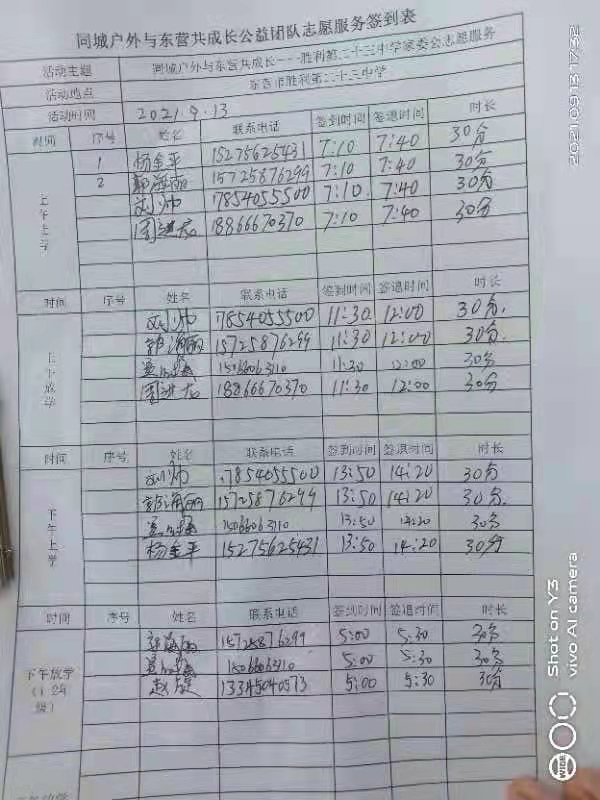 同城户外与东营共成长公益团队志愿服务签到表
活动主题 同城户外与东营共成长---胜利第二十三中学家委会志愿服务
活动地点 东营市胜利第二十三中学
活动时间 2021.9.13
时间 序号 姓名 联系电话 签到时间 签退时间 时长
上午上学
1 杨金平 15275625431 7:10 7:40 30分
2 郭海丽 15725876299 7:10 7:40 30分
刘帅 17854055500 7:10 7:40 30分
周进友 18866670370 7:10 7:40 30分
时间 序号 姓名 联系电话 签到时间 签退时间 时长
上午放学
刘帅 17854055500 11:30 12:00 30分.
郭海丽 15725876299 11:30 12:00 30分.
15066063110 11:30 12:00 30分
周进友 18866670370 11:30 12:00 30分
时间 序号 姓名 联系电话 签到时间 签退时间 时长
下午上学
刘帅 17854055500 13:50 14:20 30分
郭海丽 15725876299 13:50 14:20 30分.
15066063110 13:50 14:20 30分
杨金平 15275625431 13:50 14:20 30分
时间 序号 姓名 联系电话 签到时间 签退时间 时长
下午放学
郭海丽 15725876299 5:00 5:30 30分
15066063110 5:00 5:30 30分
赵 13345040573 5:00 5:30 30分
2021.09.13 17:32
Shot on Y3
vivo AI camera